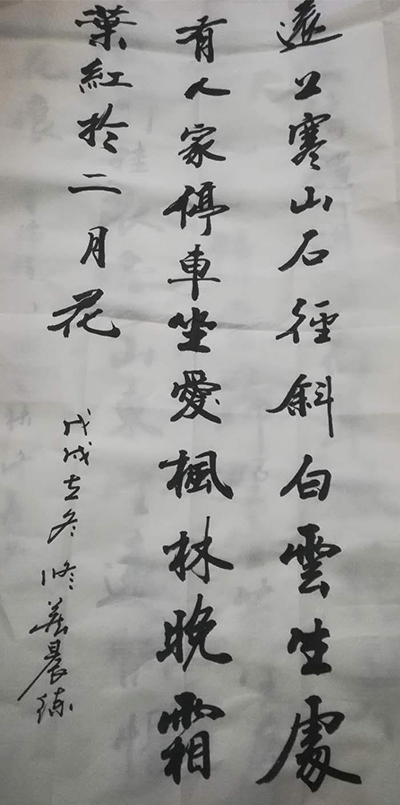 遠上寒山石徑斜白雲生處
有人家停車坐愛楓林晚霜
葉紅於二月花
戊戌立冬修義晨練